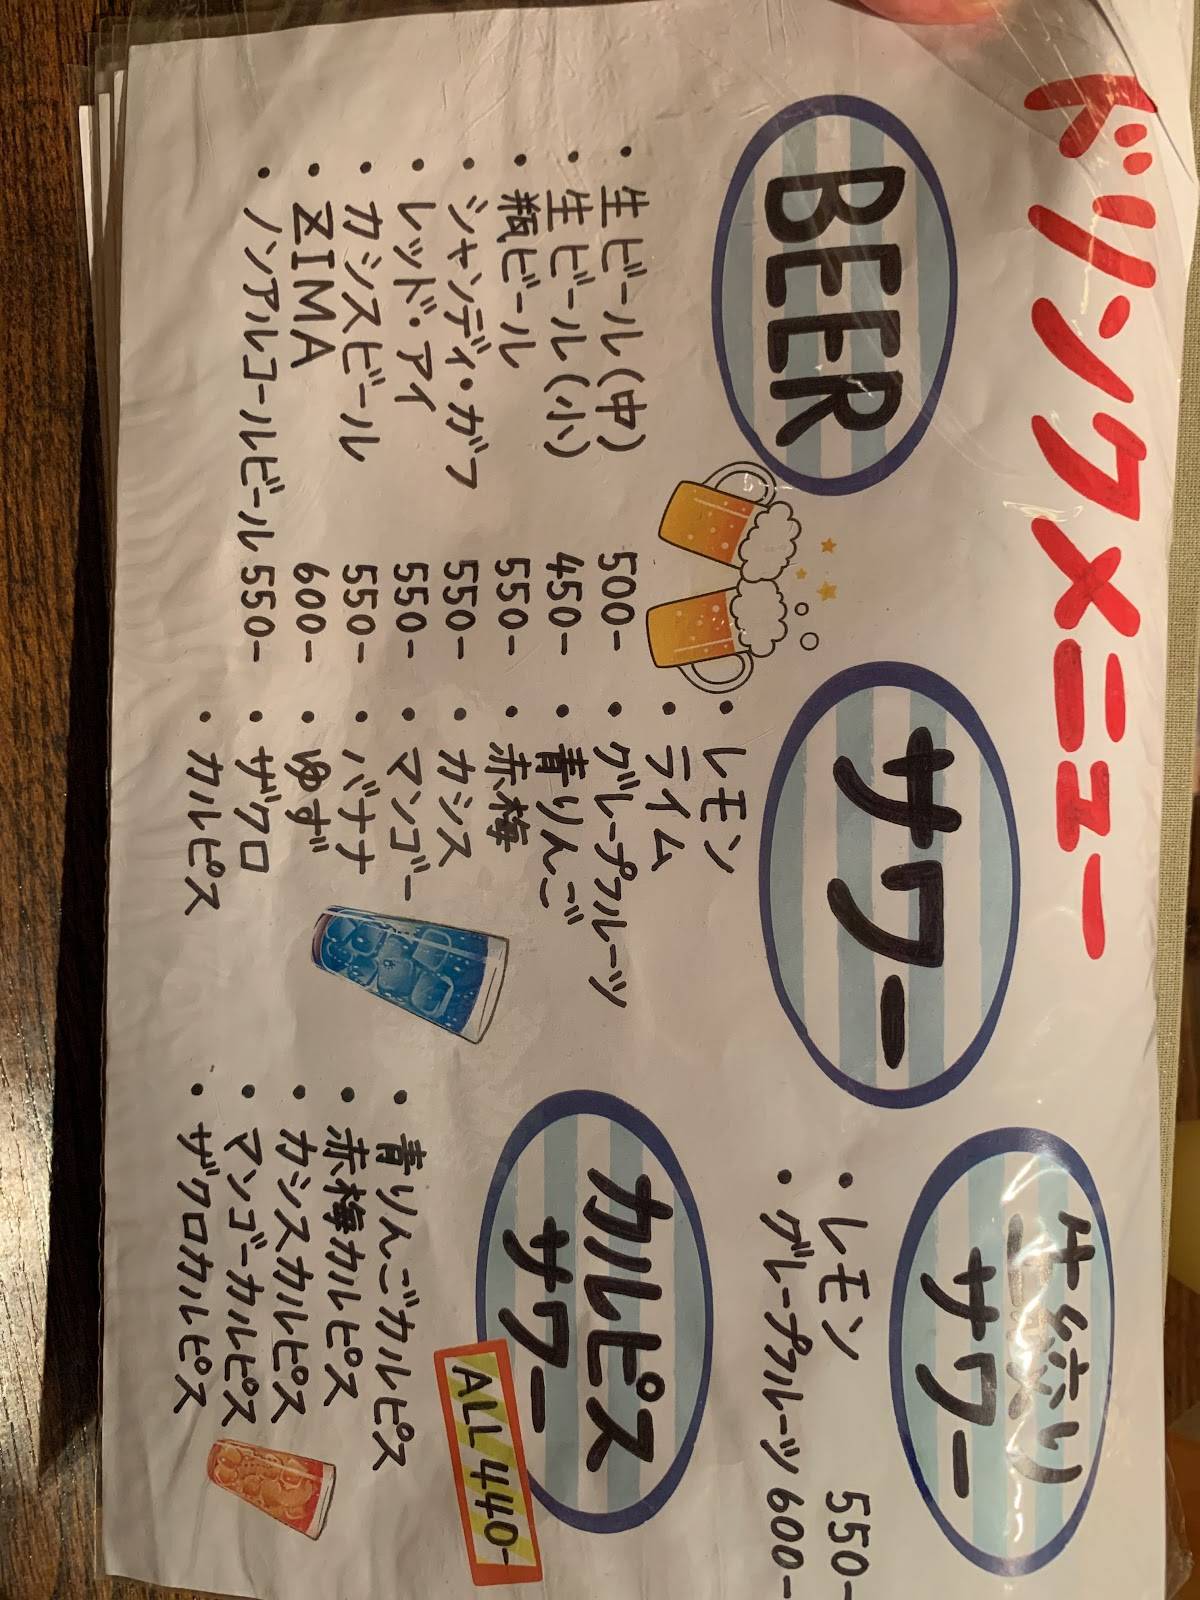 ドリンクメニュー
BEER
・生ビール(中) 500-
・生ビール(小) 450-
・瓶ビール 550-
・シャンディ・ガフ 550-
・レッド・アイ 550-
・カシスビール 550-
・ZIMA 600-
・ノンアルコールビール 550-
サワー
・レモン
・ライム
・グレープフルーツ
・青りんご
・赤梅
・カシス
・マンゴー
・バナナ
・ゆず
・ザクロ
・カルピス
生絞り
サワー
・レモン 550-
・グレープフルーツ 600-
カルピス
サワー
ALL 440-
・青りんごカルピス
・赤梅カルピス
・カシスカルピス
・マンゴーカルピス
・ザクロカルピス